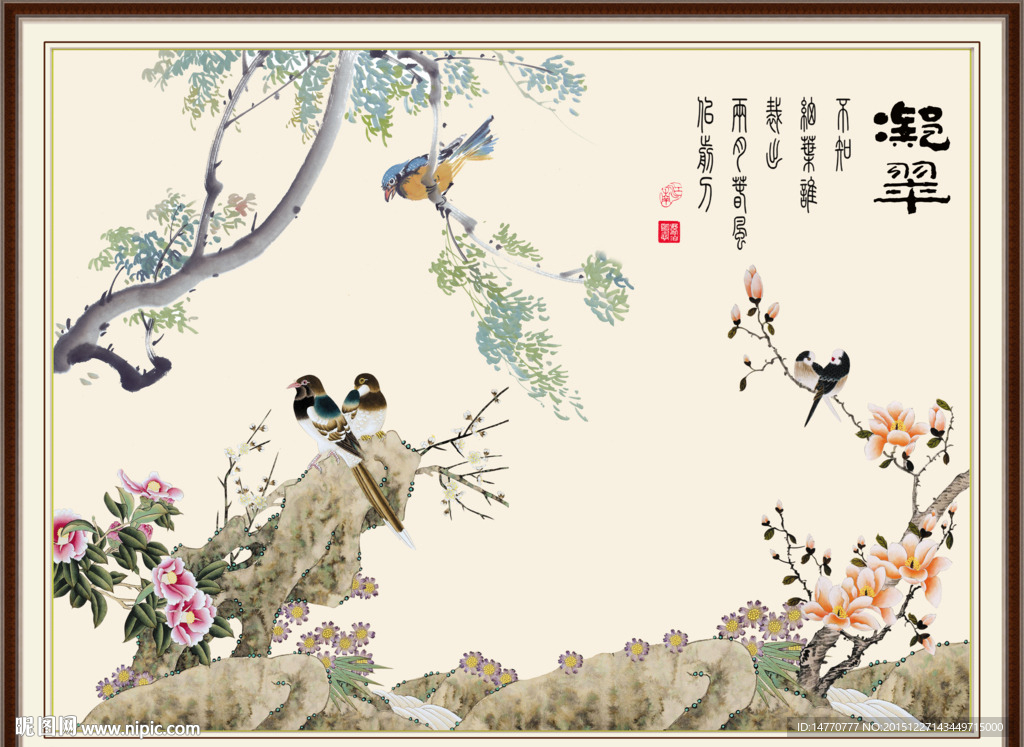 凝翠
不知
細葉誰
裁出
二月春風
似剪刀
昵图网 www.nipic.com
ID:14770777 NO:20151227143449715000